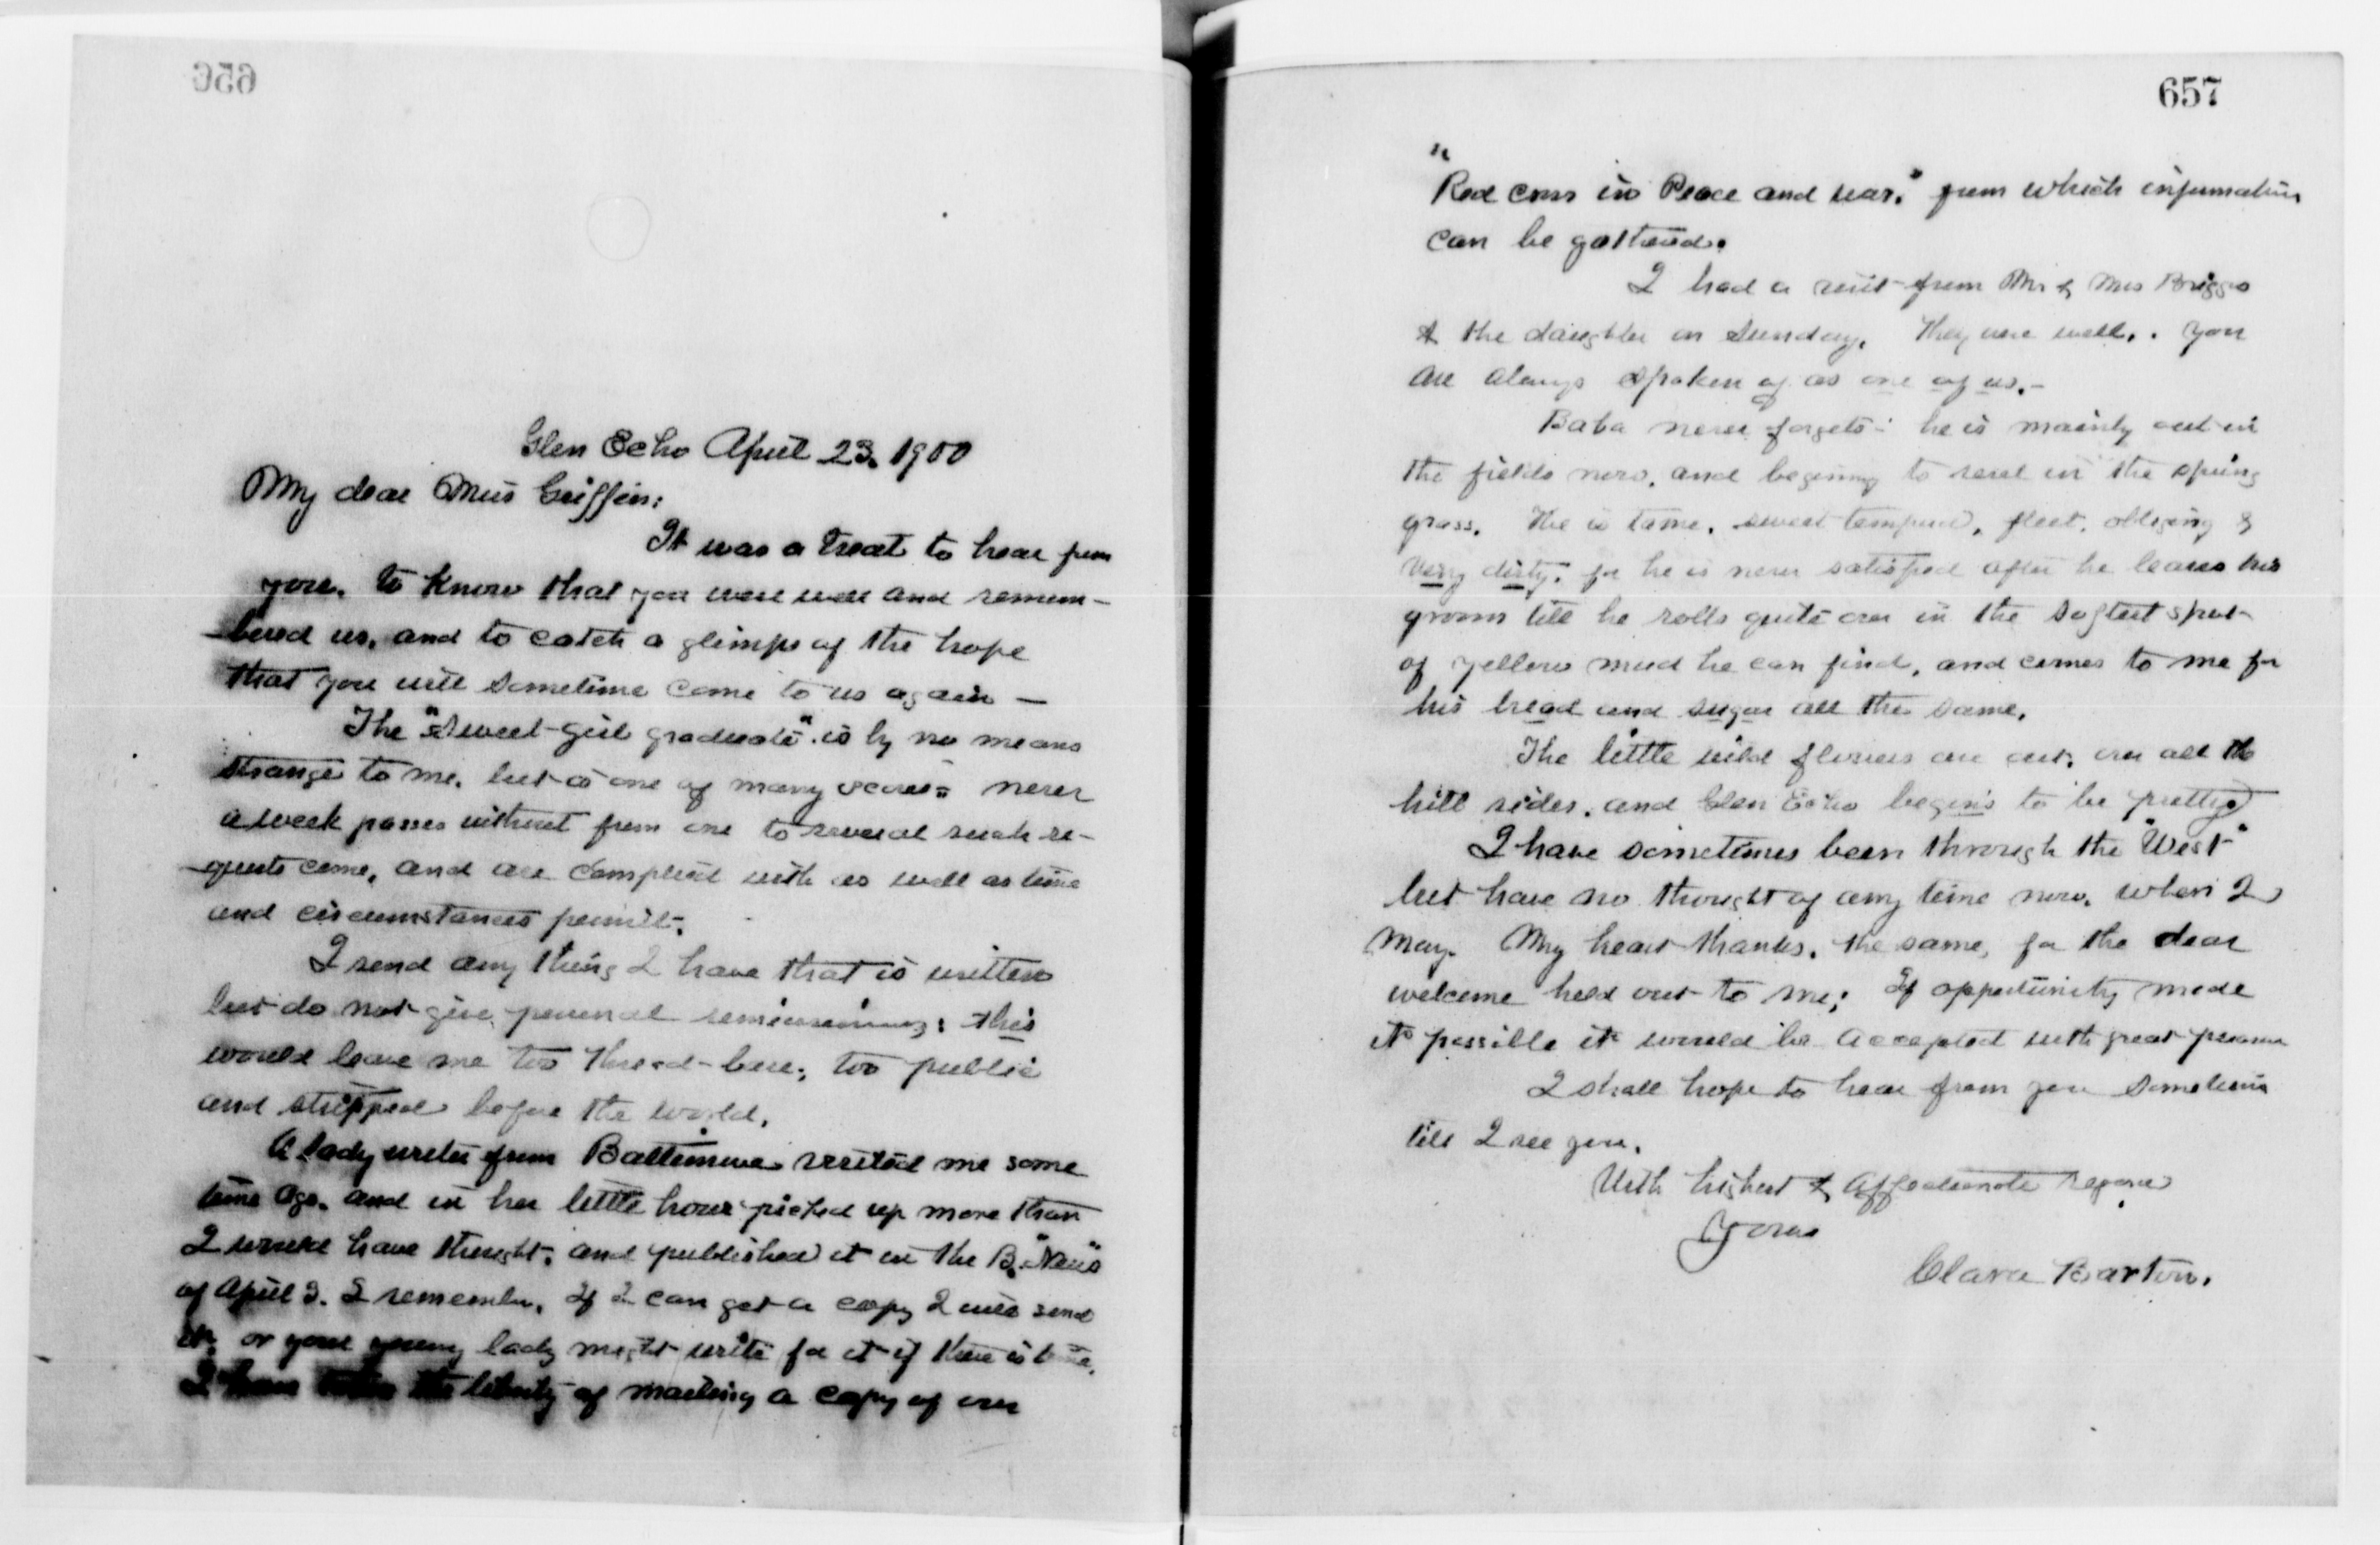 656
Glen Echo April 23. 1900
My dear Miss Griffin:
It was a treat to hear from
you. to know that you were well and remem-
bered us. and to catch a glimps of the hope
that you will sometime come to us again —
The "Sweet-girl graduate" is by no means
strange to me. but is one of many scores: never
a week passes without from one to several such re-
quests come, and are complied with as well as time
and circumstances permit.
I send any thing I have that is written
but do not give personal reminiscences: this
would leave me too thread-bare; too public
and stripped before the world.
A lady writer from Baltimore visited me some
time ago. and in her little hour picked up more than
I would have thought. and published it in the B. "News"
of April 3. I remember. If I can get a copy I will send
it. or your young lady might write for it if there is time.
I have taken the liberty of mailing a copy of our
657
"Red Cross in Peace and war." from which information
can be gathered.
I had a visit from Mr & Mrs Briggs
& the daughter on Sunday. They were well. . You
are always spoken of as one of us.—
Baba never forgets: he is mainly out in
the fields now. and begining to revel in the spring
grass. He is tame. sweet tempered, fleet. obliging &
very dirty. for he is never satisfied after he leaves his
groom till he rolls quite over in the softest spot
of yellow mud he can find, and comes to me for
his bread and sugar all the same.
The little wild flowers are out. over all the
hill sides. and Glen Echo begins to be pretty
I have sometimes been through the "West"
but have no thought of any time now. when I
may. My heart thanks. the same, for the dear
welcome held out to me; If opportunity made
it possible it would be accepted with great pleasure
I shall hope to hear from you sometime
till I see you.
With highest & affectionate regard
Yours
Clara Barton.